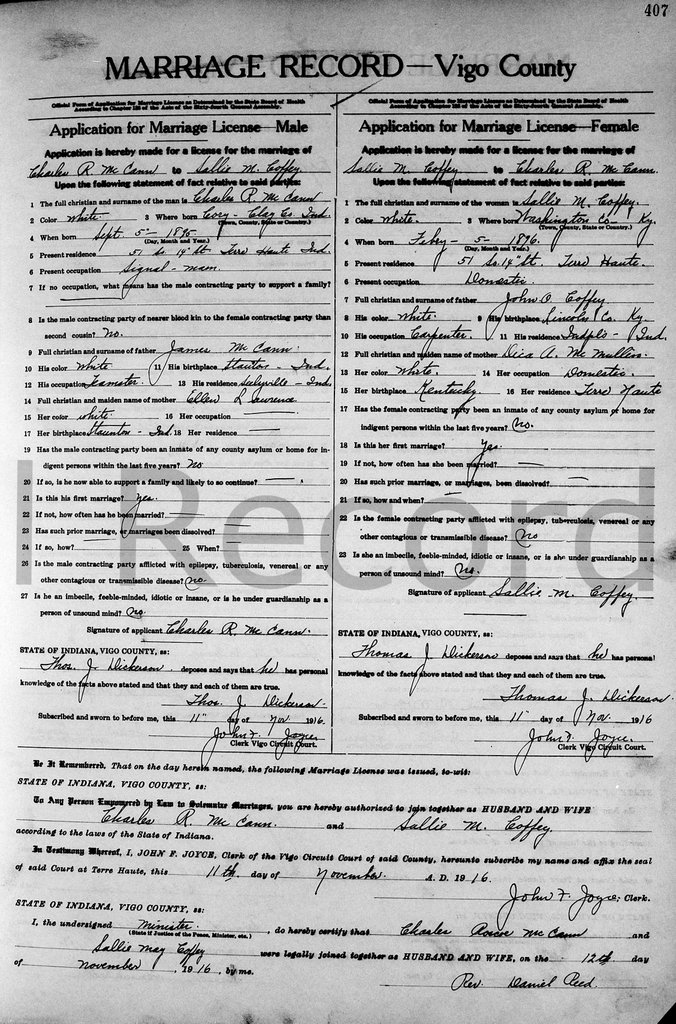 407
MARRIAGE RECORD—Vigo County
Official Form of Application for Marriage License as Determined by the State Board of Health
According to Chapter 126 of the Acts of the Sixty-fourth General Assembly.
Application for Marriage License—Male
Application is hereby made for a license for the marriage of
Charles R. McCann to Sallie M. Coffey
Upon the following statement of fact relative to said parties:
1 The full christian and surname of the man is Charles R. McCann
2 Color White 3 Where born Cory - Clay Co Ind.
(Town, County, State or Country.)
4 When born Sept. 5 - 1895
(Day, Month and Year.)
5 Present residence 51 So. 14" St. Terre Haute Ind.
6 Present occupation Signal - mam.
7 If no occupation, what means has the male contracting party to support a family?
8 Is the male contracting party of nearer blood kin to the female contracting party than
second cousin? No.
9 Full christian and surname of father James McCann.
10 His color White 11 His birthplace Staunton - Ind.
12 His occupation Teamster 13 His residence Seelyville - Ind
14 Full christian and maiden name of mother Ellen L Lawrence
15 Her color White 16 Her occupation
17 Her birthplace Staunton - Ind. 18 Her residence
19 Has the male contracting party been an inmate of any county asylum or home for in-
digent persons within the last five years? No
20 If so, is he now able to support a family and likely to so continue?
21 Is this his first marriage? Yes.
22 If not, how often has he been married?
23 Has such prior marriage, or marriages been dissolved?
24 If so, how? 25 When?
26 Is the male contracting party afflicted with epilepsy, tuberculosis, venereal or any
other contagious or transmissible disease? No.
27 Is he an imbecile, feeble-minded, idiotic or insane, or is he under guardianship as a
person of unsound mind? No
Signature of applicant Charles R. McCann.
STATE OF INDIANA, VIGO COUNTY, ss:
Thos. J. Dickerson deposes and says that he has personal
knowledge of the facts above stated and that they and each of them are true.
Thos. J. Dickerson.
Subscribed and sworn to before me, this 11" day of Nov. 1916.
John F. Joyce
Clerk Vigo Circuit Court.
Official Form of Application for Marriage License as Determined by the State Board of Health
According to Chapter 126 of the Acts of the Sixty-fourth General Assembly.
Application for Marriage License—Female
Application is hereby made for a license for the marriage of
Sallie M. Coffey to Charles R. McCann.
Upon the following statement of fact relative to said parties:
1 The full christian and surname of the woman is Sallie M. Coffey.
2 Color White. 3 Where born Washington Co - Ky.
(Town, County, State or Country.)
4 When born Feby - 5 - 1896.
(Day, Month and Year.)
5 Present residence 51 So. 14" St. Terre Haute.
6 Present occupation Domestic.
7 Full christian and surname of father John O. Coffey
8 His color White. 9 His birthplace Lincoln Co. Ky.
10 His occupation Carpenter. 11 His residence Indpls - Ind.
12 Full christian and maiden name of mother Dica A. McMullin.
13 Her color White. 14 Her occupation Domestic.
15 Her birthplace Kentucky. 16 Her residence Terre Haute
17 Has the female contracting party been an inmate of any county asylum or home for
indigent persons within the last five years? No.
18 Is this her first marriage? Yes.
19 If not, how often has she been married?
20 Has such prior marriage, or marriages, been dissolved?
21 If so, how and when?
22 Is the female contracting party afflicted with epilepsy, tuberculosis, venereal or any
other contagious or transmissible disease? No
23 Is she an imbecile, feeble-minded, idiotic or insane, or is she under guardianship as a
person of unsound mind? No.
Signature of applicant Sallie M. Coffey.
STATE OF INDIANA, VIGO COUNTY, ss:
Thomas J Dickerson deposes and says that he has personal
knowledge of the facts above stated and that they and each of them are true.
Thomas J. Dickerson.
Subscribed and sworn to before me, this 11" day of Nov. 1916
John F. Joyce.
Clerk Vigo Circuit Court.
Be It Remembered, That on the day herein named, the following Marriage License was issued, to-wit:
STATE OF INDIANA, VIGO COUNTY, ss:
To Any Person Empowered by Law to Solemnize Marriages, you are hereby authorized to join together as HUSBAND AND WIFE
Charles R. McCann. and Sallie M. Coffey.
according to the laws of the State of Indiana.
In Testimony Whereof, I, JOHN F. JOYCE, Clerk of the Vigo Circuit Court of said County, hereunto subscribe my name and affix the seal
of said Court at Terre Haute, this 11th day of November. A. D. 1916.
John F. Joyce, Clerk.
STATE OF INDIANA, VIGO COUNTY, ss:
I, the undersigned Minister. , do hereby certify that Charles Roscoe McCann and
(State if Justice of the Peace, Minister, etc.)
Sallie May Coffey were legally joined together as HUSBAND AND WIFE, on the 12th day
of November , 1916, by me.
Rev. Daniel Reed.
Record